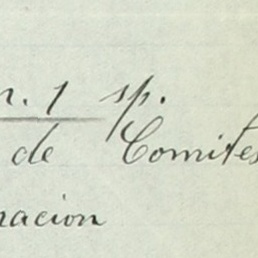 n. 1 sp.
de Comites
nacion